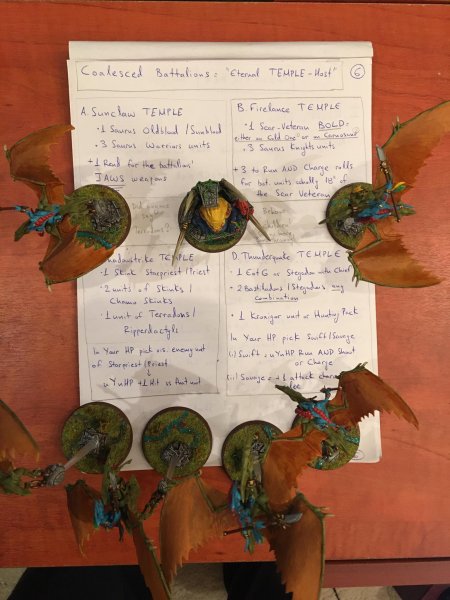 Coalesced Battalions: "Eternal TEMPLE-Host"
6
A. Sunclaw TEMPLE
• 1 Saurus Oldblood / Sunblood
• 3 Saurus Warriors units
+ 1 Rend for the battalions'
JAWS weapons
B. Firelance TEMPLE
• 1 Scar-Veteran BOLD:
either on Cold One or on Carnosaur
• 3 Saurus Knights units
+ 3 to Run AND Charge rolls
for bat. units wholly 18" of
the Scar Veteran
Terradons?
TEMPLE
• 1 Skink Starpriest / Priest
• 2 units of Skinks /
Chamo Skinks
• 1 unit of Terradons /
Ripperdactyls
In Your HP pick vis. enemy unit
of Starpriest / Priest
uYnHP +1 Hit vs that unit
D. Thunderquake TEMPLE
• 1 EotG or Stegadon with Chief
• 2 Bastiladons / Stegadons any
combination
• 1 Kroxigor unit or Hunting Pack
In Your HP pick Swift / Savage
(i) Swift = uYnHP Run AND Shoot
or Charge
(ii) Savage = +1 attack